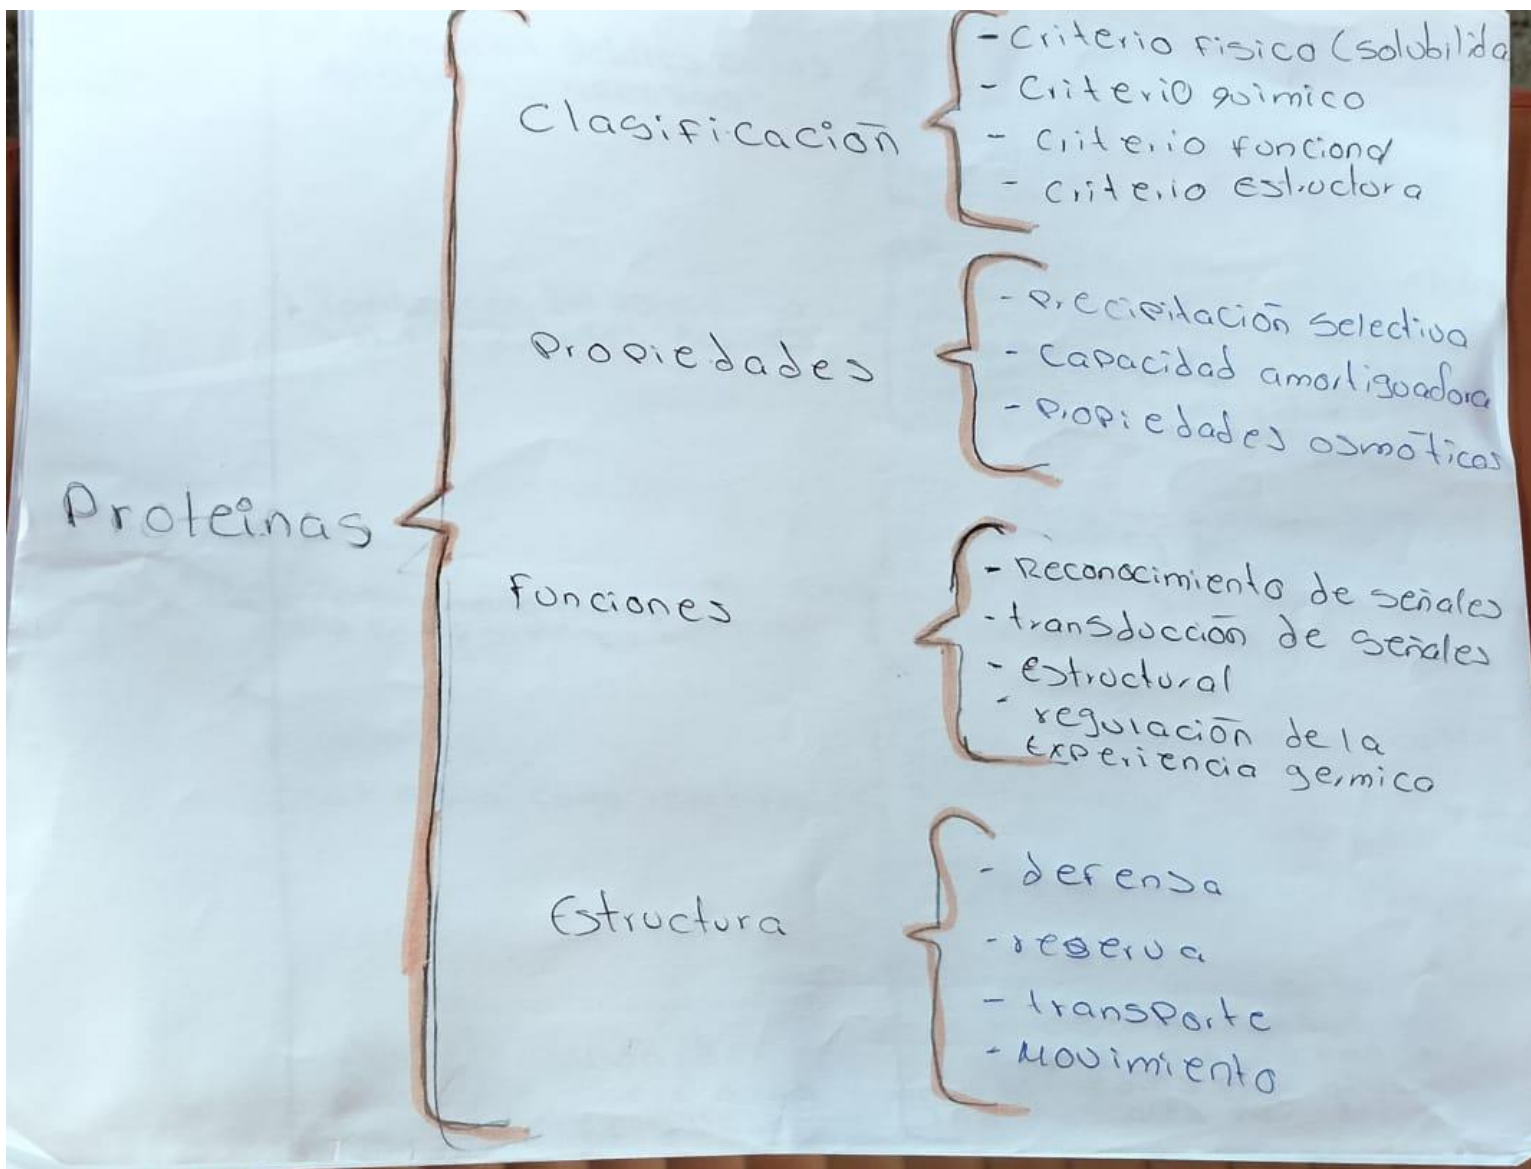 Proteinas
Clasificación
- Criterio fisico (solubilida
- Criterio quimico
- Criterio funcional
- Criterio Estructura
Propiedades
- Precipitación selectiva
- Capacidad amortiguadora
- Propiedades osmóticas
Funciones
- Reconocimiento de señales
- transducción de señales
- estructural
- regulación de la
experiencia germico
Estructura
- defensa
- reserva
- transporte
- Movimiento